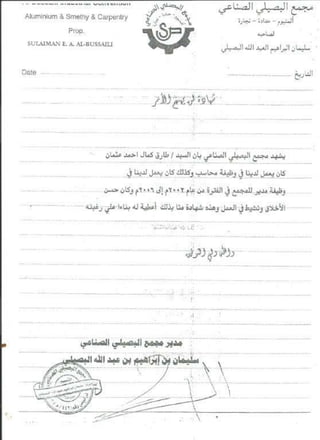 Aluminium & Smethy & Carpentry
Prop.
SULAIMAN E. A. AL-BUSSAILI
مجمع البصيلي الصناعي
المنيوم - حدادة - نجارة
لصاحبه
سليمان البراهيم العبد الله البصيلي
Date
التاريخ
شهادة لمن يهمه الأمر
يشهد مجمع البصيلي الصناعي بان السيد / طارق كمال احمد عثمان
كان يعمل لدينا في وظيفة محاسب وكذلك كان يعمل لدينا في
وظيفة مدير للمجمع في الفترة من عام ٢٠٠٢م إلى ٢٠٠٦م وكان حسن
الأخلاق ونشيط في العمل وهذه شهادة منا بذلك أعطية له بناءا علي رغبته
والله ولي التوفيق
مدير مجمع البصيلي الصناعي
سليمان بن إبراهيم بن عبد الله البصيلي